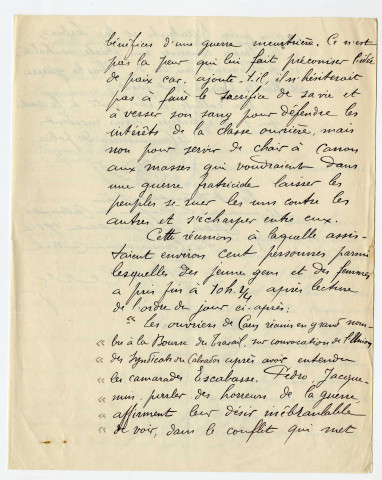 bénéfices d'une guerre meurtrière. Ce n'est
pas la peur qui lui fait préconiser l'idée
de paix car, ajoute-t-il, il n'hésiterait
pas à faire le sacrifice de sa vie et
à verser son sang pour défendre les
intérêts de la classe ouvrière, mais
non pour servir de chair à canon
aux masses qui voudraient dans
une guerre fratricide laisser les
peuples se ruer les uns contre les
autres et s'écharper entre eux.
Cette réunion à laquelle assis-
taient environ cent personnes parmi
lesquelles des jeunes gens et des femmes
a pris fin à 10h. 1/4 après lecture
de l'ordre du jour ci-après:
" Les ouvriers de Caen réunis en grand nom-
" bre à la Bourse du Travail, sur convocation de l'Union
" des Syndicats du Calvados après avoir entendu
" les camarades Escabasse, Pédro, Jacque-
" min, parler des horreurs de la guerre,
" affirment leur désir inébranlable
" de voir, dans le conflit qui met